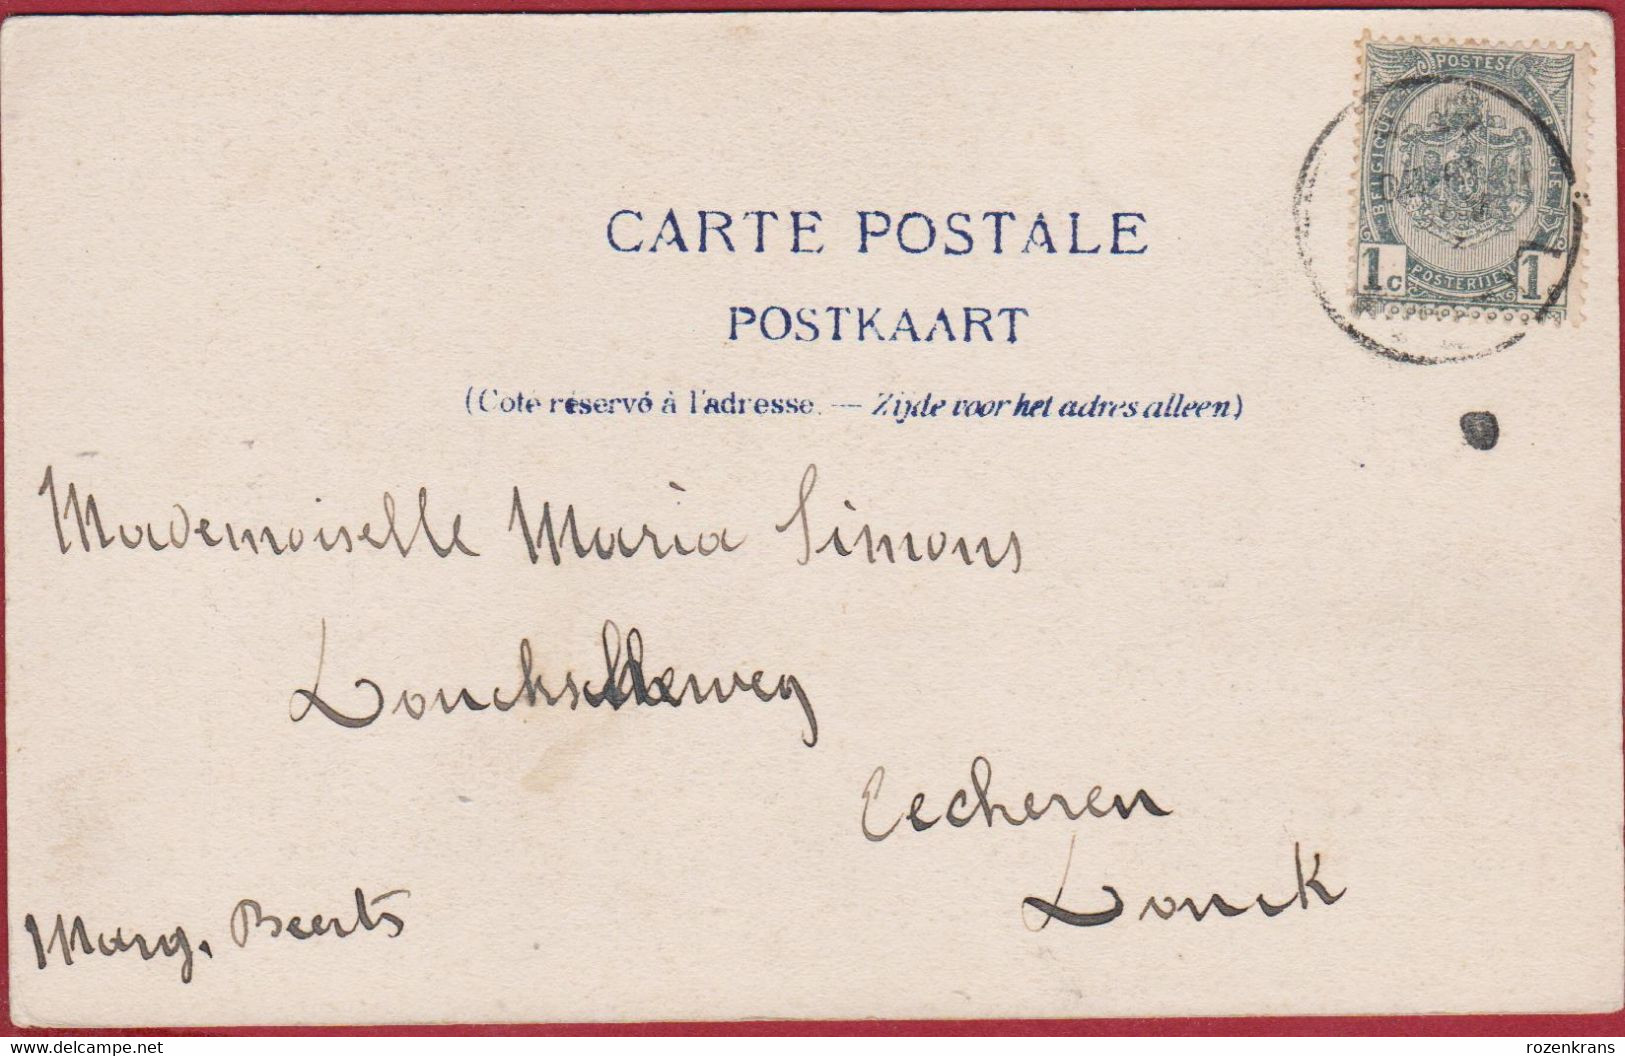 POSTES
BELGIQUE
BELGIE
1c POSTERIJEN 1c
CARTE POSTALE
POSTKAART
(Coté réservé à l'adresse. — Zijde voor het adres alleen)
Mademoiselle Maria Simons
Eecheren
Donck
Marg. Beerts
delcampe.net
rozenkrans